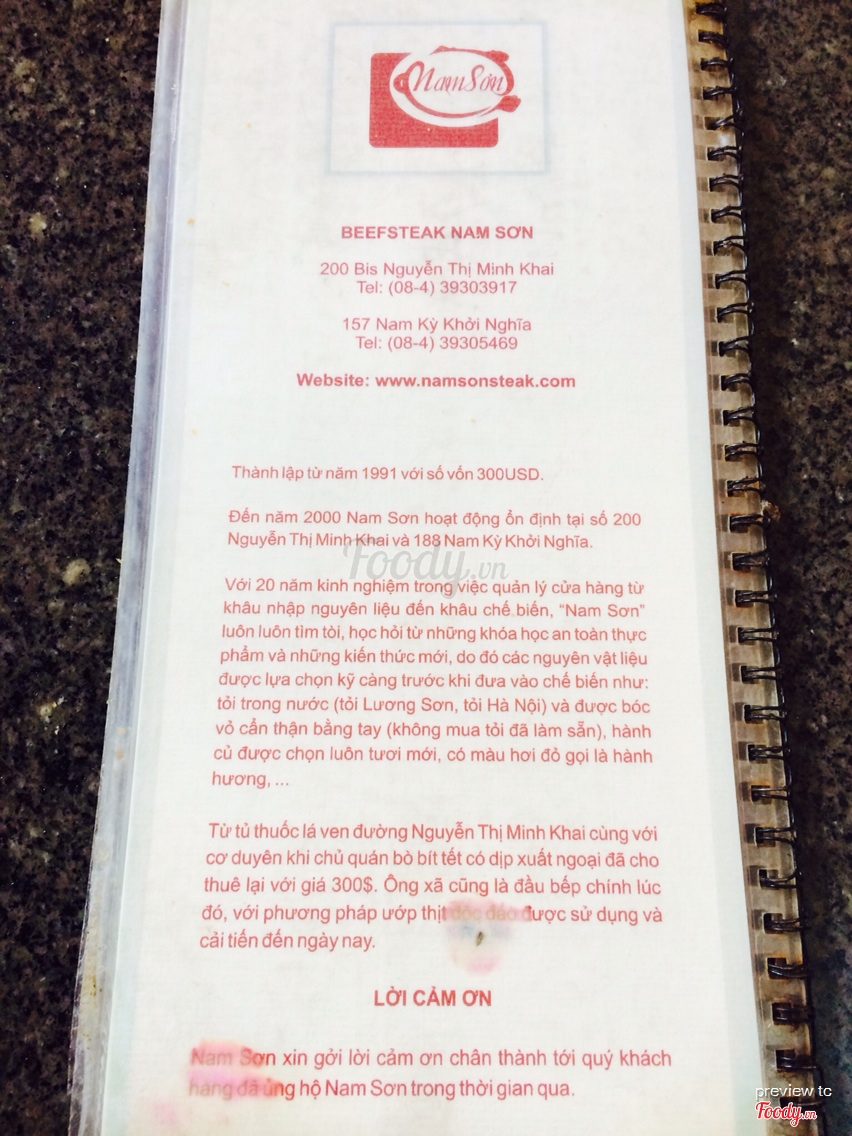 Nam Sơn
BEEFSTEAK NAM SƠN
200 Bis Nguyễn Thị Minh Khai
Tel: (08-4) 39303917
157 Nam Kỳ Khởi Nghĩa
Tel: (08-4) 39305469
Website: www.namsonsteak.com
Thành lập từ năm 1991 với số vốn 300USD.
Đến năm 2000 Nam Sơn hoạt động ổn định tại số 200
Nguyễn Thị Minh Khai và 188 Nam Kỳ Khởi Nghĩa.
Foody.vn
Với 20 năm kinh nghiệm trong việc quản lý cửa hàng từ
khâu nhập nguyên liệu đến khâu chế biến, “Nam Sơn”
luôn luôn tìm tòi, học hỏi từ những khóa học an toàn thực
phẩm và những kiến thức mới, do đó các nguyên vật liệu
được lựa chọn kỹ càng trước khi đưa vào chế biến như:
tỏi trong nước (tỏi Lương Sơn, tỏi Hà Nội) và được bóc
vỏ cẩn thận bằng tay (không mua tỏi đã làm sẵn), hành
củ được chọn luôn tươi mới, có màu hơi đỏ gọi là hành
hương, ...
Từ tủ thuốc lá ven đường Nguyễn Thị Minh Khai cùng với
cơ duyên khi chủ quán bò bít tết có dịp xuất ngoại đã cho
thuê lại với giá 300$. Ông xã cũng là đầu bếp chính lúc
đó, với phương pháp ướp thịt độc đáo được sử dụng và
cải tiến đến ngày nay.
LỜI CẢM ƠN
Nam Sơn xin gởi lời cảm ơn chân thành tới quý khách
hàng đã ủng hộ Nam Sơn trong thời gian qua.
preview tc
Foody.vn